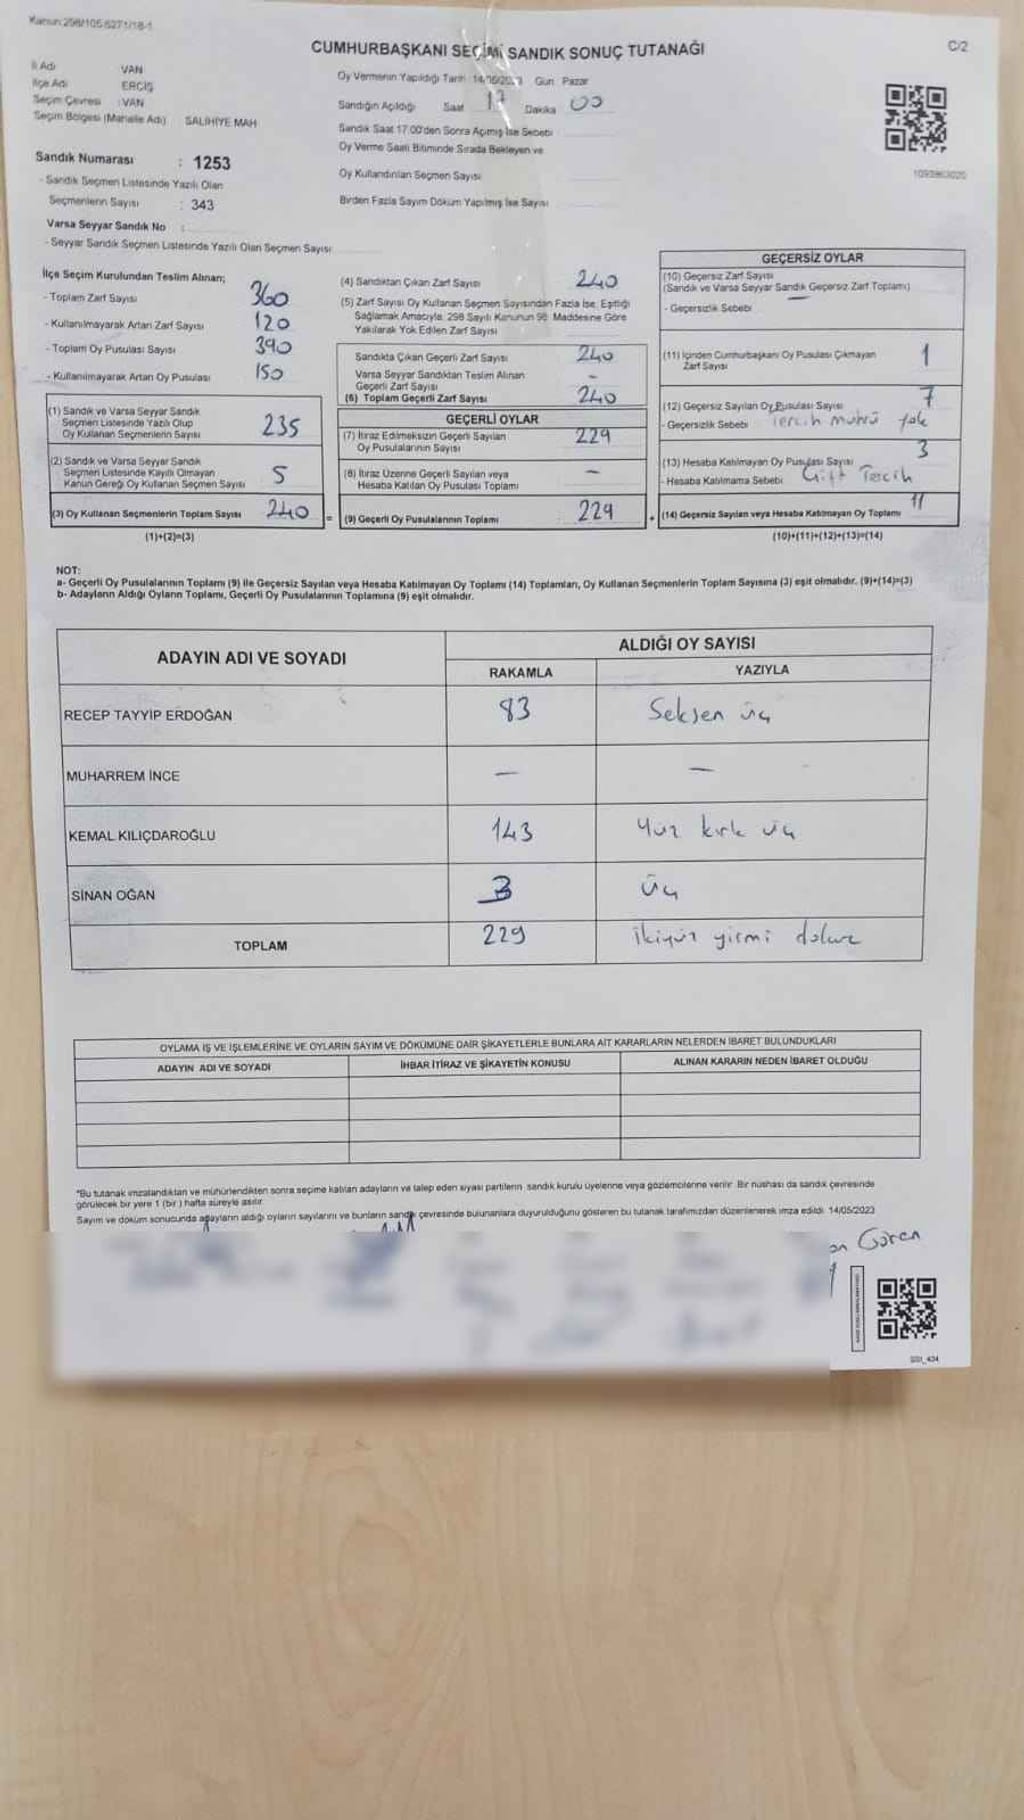 Kanun:298/105.6271/18-1
CUMHURBAŞKANI SEÇİMİ SANDIK SONUÇ TUTANAĞI
C/2
İl Adı VAN
İlçe Adı ERCİŞ
Seçim Çevresi : VAN
Seçim Bölgesi (Mahalle Adı) SALİHİYE MAH
Oy Vermenin Yapıldığı Tarih 14/05/2023 Gün Pazar
Sandığın Açıldığı Saat 17 Dakika 00
Sandık Saat 17.00'den Sonra Açılmış İse Sebebi
Oy Verme Saati Bitiminde Sırada Bekleyen ve
Oy Kullandırılan Seçmen Sayısı
Birden Fazla Sayım Döküm Yapılmış İse Sayısı
Sandık Numarası : 1253
- Sandık Seçmen Listesinde Yazılı Olan
Seçmenlerin Sayısı : 343
Varsa Seyyar Sandık No :
- Seyyar Sandık Seçmen Listesinde Yazılı Olan Seçmen Sayısı
İlçe Seçim Kurulundan Teslim Alınan;
- Toplam Zarf Sayısı 360
- Kullanılmayarak Artan Zarf Sayısı 120
- Toplam Oy Pusulası Sayısı 390
- Kullanılmayarak Artan Oy Pusulası 150
(1) Sandık ve Varsa Seyyar Sandık
Seçmen Listesinde Yazılı Olup
Oy Kullanan Seçmenlerin Sayısı 235
(2) Sandık ve Varsa Seyyar Sandık
Seçmen Listesinde Kayıtlı Olmayan
Kanun Gereği Oy Kullanan Seçmen Sayısı 5
(3) Oy Kullanan Seçmenlerin Toplam Sayısı 240 =
(1)+(2)=(3)
(4) Sandıktan Çıkan Zarf Sayısı 240
(5) Zarf Sayısı Oy Kullanan Seçmen Sayısından Fazla İse; Eşitliği
Sağlamak Amacıyla; 298 Sayılı Kanunun 98. Maddesine Göre
Yakılarak Yok Edilen Zarf Sayısı
Sandıkta Çıkan Geçerli Zarf Sayısı 240
Varsa Seyyar Sandıktan Teslim Alınan
Geçerli Zarf Sayısı -
(6) Toplam Geçerli Zarf Sayısı 240
GEÇERLİ OYLAR
(7) İtiraz Edilmeksizin Geçerli Sayılan
Oy Pusulalarının Sayısı 229
(8) İtiraz Üzerine Geçerli Sayılan veya
Hesaba Katılan Oy Pusulası Toplamı -
(9) Geçerli Oy Pusulalarının Toplamı 229 +
GEÇERSİZ OYLAR
(10) Geçersiz Zarf Sayısı
(Sandık ve Varsa Seyyar Sandık Geçersiz Zarf Toplamı) -
- Geçersizlik Sebebi
(11) İçinden Cumhurbaşkanı Oy Pusulası Çıkmayan
Zarf Sayısı 1
(12) Geçersiz Sayılan Oy Pusulası Sayısı 7
- Geçersizlik Sebebi Tercih mührü yok
(13) Hesaba Katılmayan Oy Pusulası Sayısı 3
- Hesaba Katılmama Sebebi Çift Tercih
(14) Geçersiz Sayılan veya Hesaba Katılmayan Oy Toplamı 11
(10)+(11)+(12)+(13)=(14)
NOT:
a- Geçerli Oy Pusulalarının Toplamı (9) ile Geçersiz Sayılan veya Hesaba Katılmayan Oy Toplamı (14) Toplamları, Oy Kullanan Seçmenlerin Toplam Sayısına (3) eşit olmalıdır. (9)+(14)=(3)
b- Adayların Aldığı Oyların Toplamı, Geçerli Oy Pusulalarının Toplamına (9) eşit olmalıdır.
ADAYIN ADI VE SOYADI
ALDIĞI OY SAYISI
RAKAMLA YAZIYLA
RECEP TAYYİP ERDOĞAN 83 Seksen üç
MUHARREM İNCE - -
KEMAL KILIÇDAROĞLU 143 Yüz kırk üç
SİNAN OĞAN 3 üç
TOPLAM 229 ikiyüz yirmi dokuz
OYLAMA İŞ VE İŞLEMLERİNE VE OYLARIN SAYIM VE DÖKÜMÜNE DAİR ŞİKAYETLERLE BUNLARA AİT KARARLARIN NELERDEN İBARET BULUNDUKLARI
ADAYIN ADI VE SOYADI İHBAR İTİRAZ VE ŞİKAYETİN KONUSU ALINAN KARARIN NEDEN İBARET OLDUĞU
*Bu tutanak imzalandıktan ve mühürlendikten sonra seçime katılan adayların ve talep eden siyasi partilerin sandık kurulu üyelerine veya gözlemcilerine verilir. Bir nüshası da sandık çevresinde
görülecek bir yere 1 (bir) hafta süreyle asılır.
Sayım ve döküm sonucunda adayların aldığı oyların sayılarını ve bunların sandık çevresinde bulunanlara duyurulduğunu gösteren bu tutanak tarafımızdan düzenlenerek imza edildi. 14/05/2023
Gören